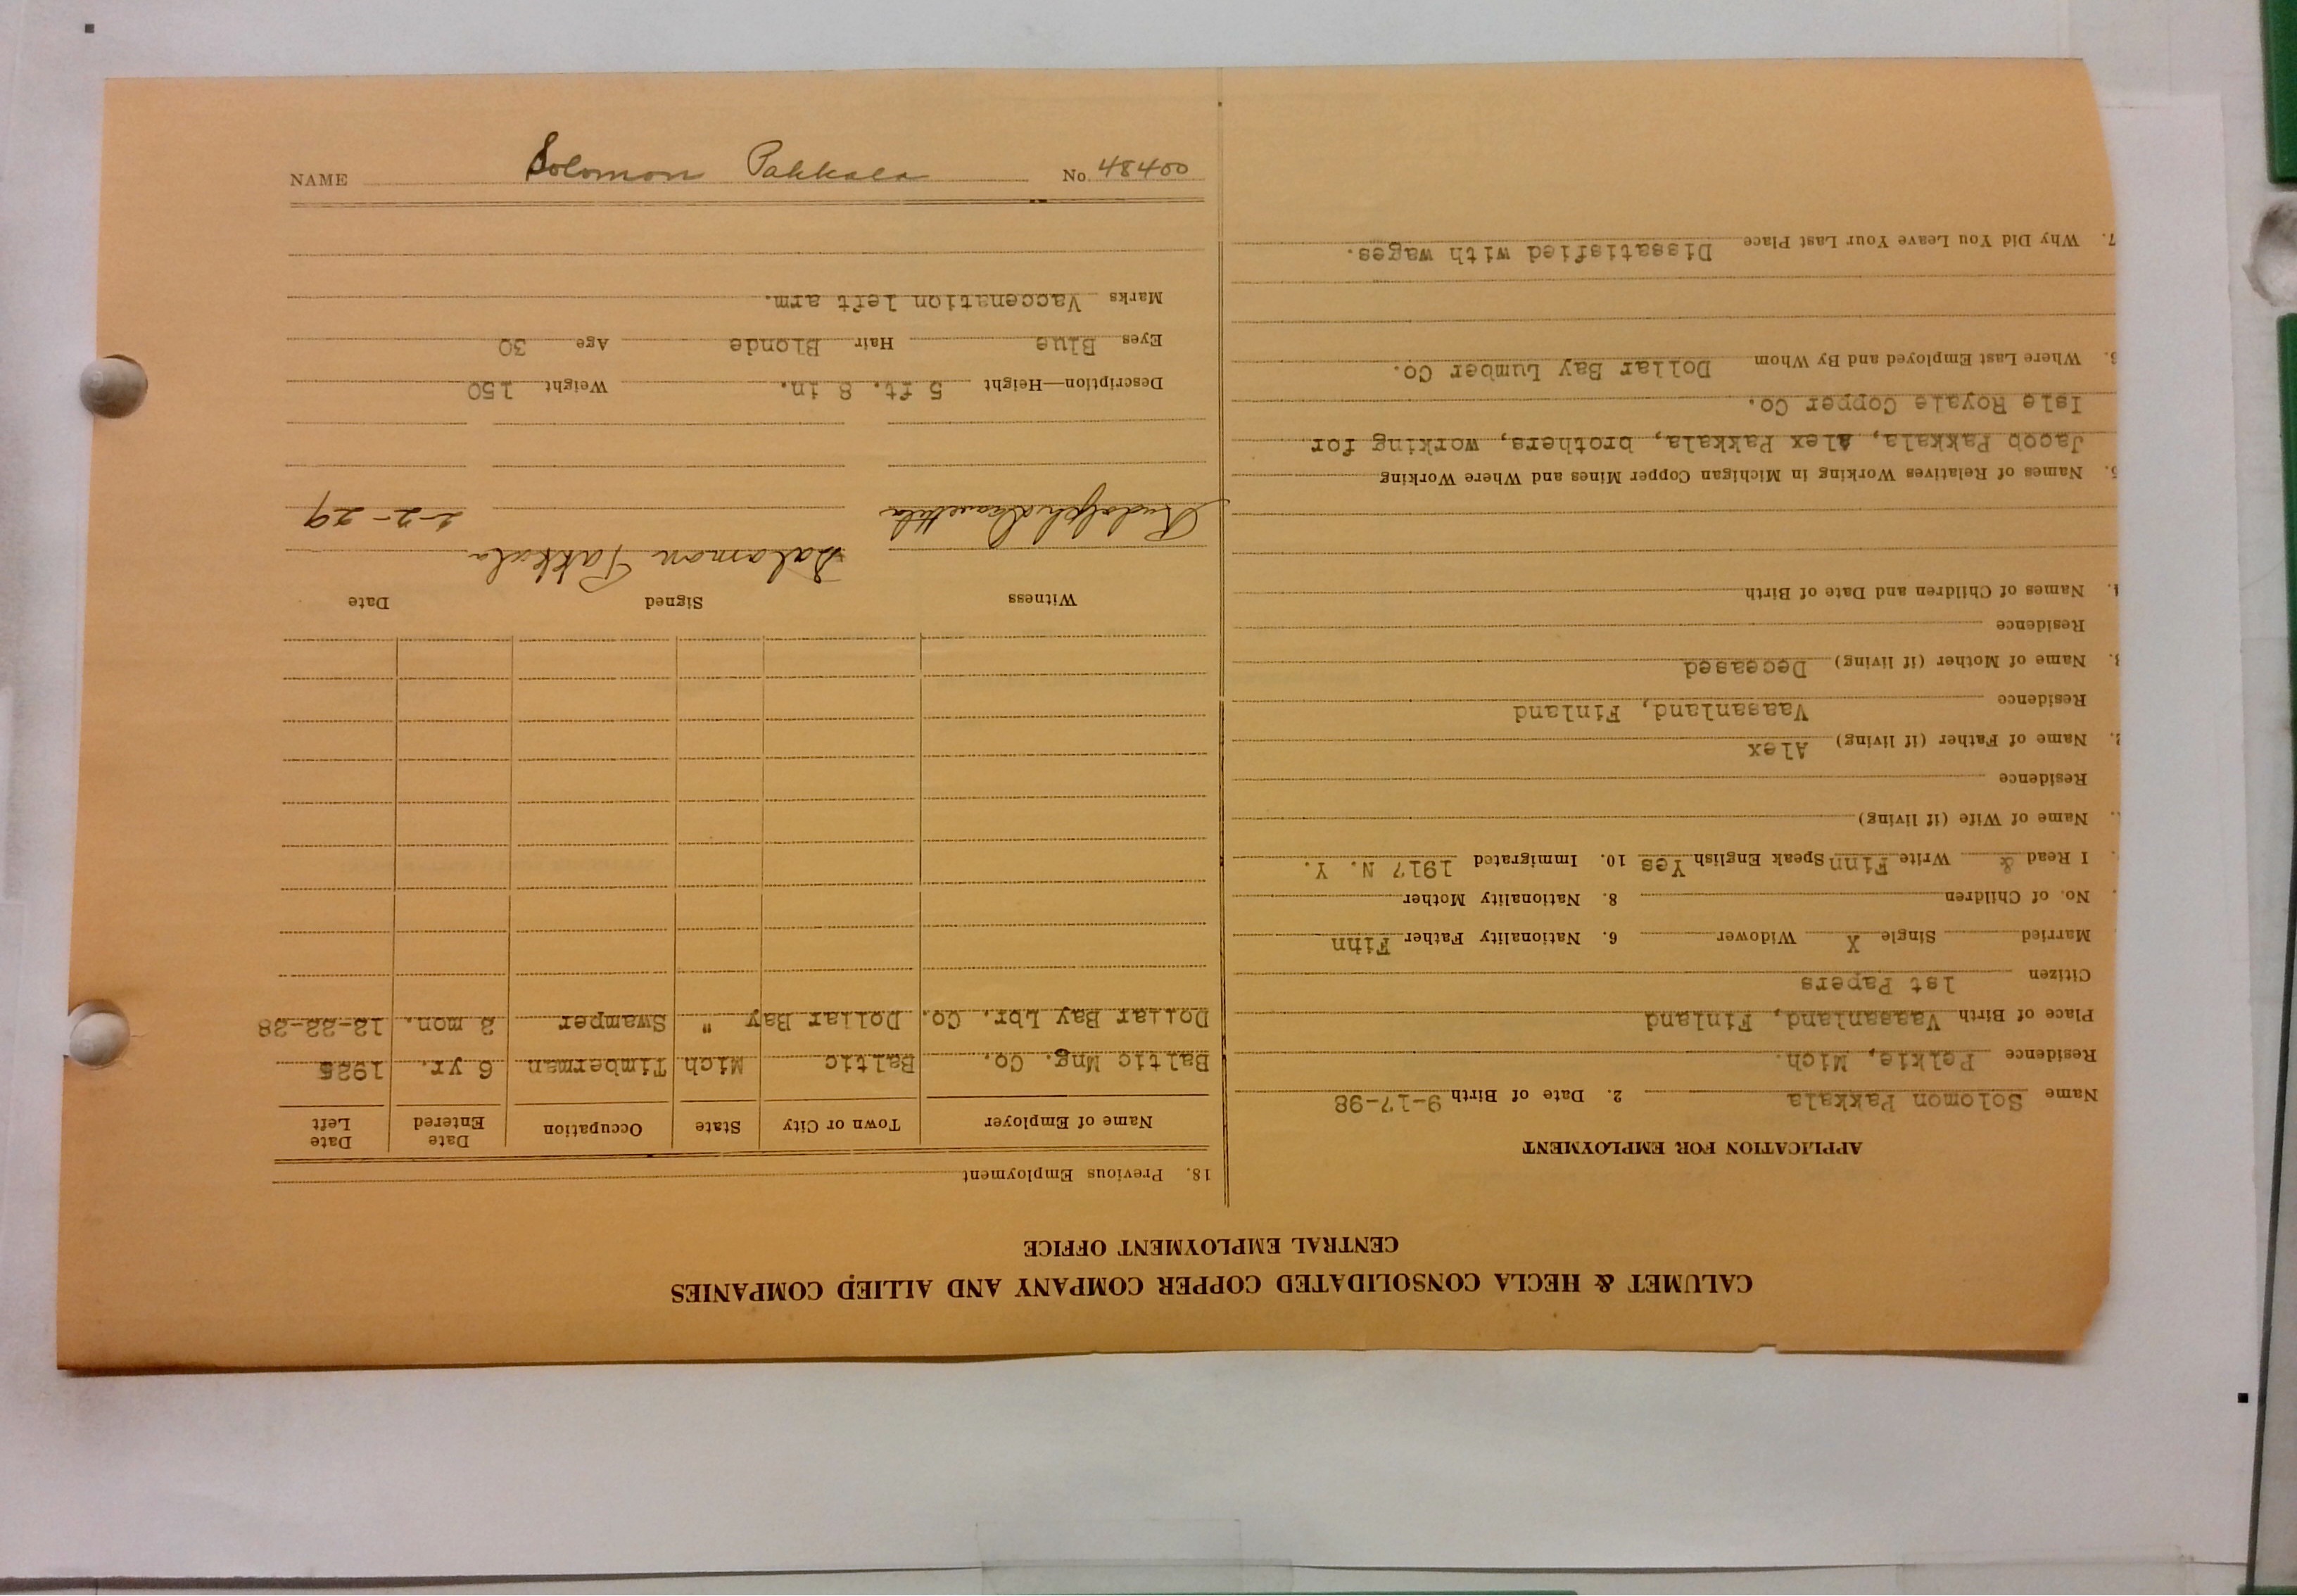 CALUMET & HECLA CONSOLIDATED COPPER COMPANY AND ALLIED COMPANIES
CENTRAL EMPLOYMENT OFFICE
APPLICATION FOR EMPLOYMENT
Name Solomon Pakkala 2. Date of Birth 9-17-98
Residence Pelkie, Mich.
Place of Birth Vaasanland, Finland
Citizen 1st Papers
Married Single X Widower 6. Nationality Father Finn
No. of Children 8. Nationality Mother
I Read & Write Finn Speak English Yes 10. Immigrated 1917 N. Y.
Name of Wife (if living)
Residence
Name of Father (if living) Alex
Residence Vaasanland, Finland
Name of Mother (if living) Deceased
Residence
Names of Children and Date of Birth
Names of Relatives Working in Michigan Copper Mines and Where Working
Jacob Pakkala, Alex Pakkala, brothers, working for
Isle Royale Copper Co.
Where Last Employed and By Whom Dollar Bay Lumber Co.
7. Why Did You Leave Your Last Place Dissatisfied with wages.
18. Previous Employment
Name of Employer Town or City State Occupation Date Entered Date Left
Baltic Mng. Co. Baltic Mich Timberman 6 yr. 1925
Dollar Bay Lbr. Co. Dollar Bay " Swamper 2 mon. 12-22-28
Witness Signed Date
Salamon Pakkala
Rudolph 2-2-29
Description—Height 5 ft. 8 in. Weight 150
Eyes Blue Hair Blonde Age 30
Marks Vaccenation left arm.
NAME Solomon Pakkala No. 48400